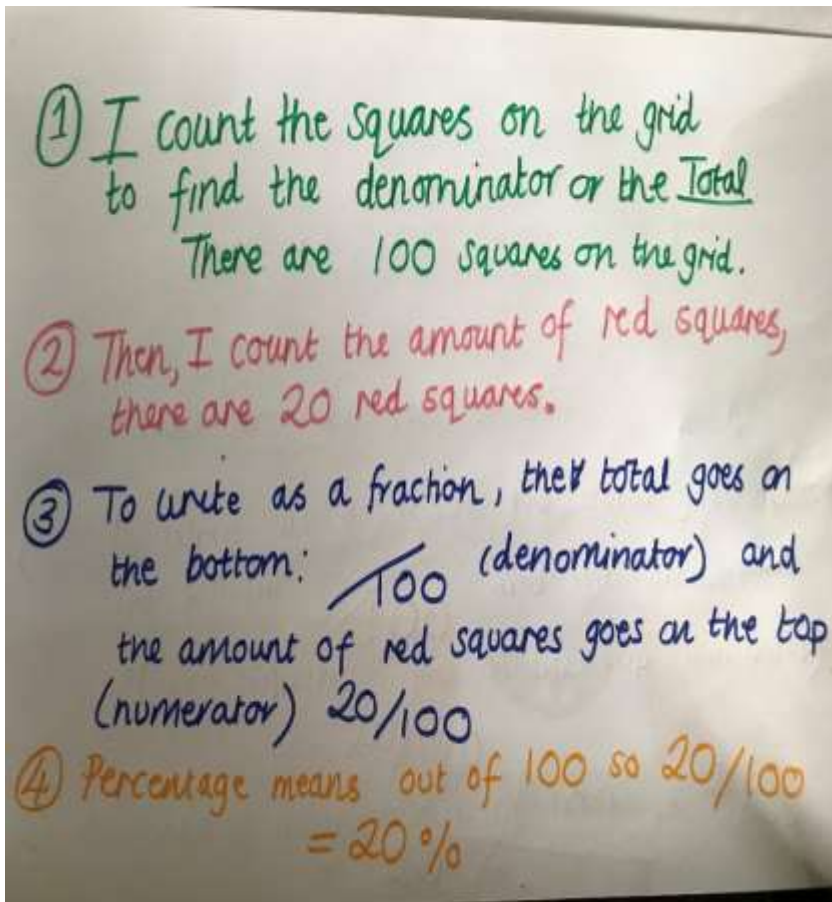 ① I count the squares on the grid
to find the denominator or the Total
There are 100 squares on the grid.
② Then, I count the amount of red squares,
there are 20 red squares.
③ To write as a fraction, the total goes on
the bottom: /100 (denominator) and
the amount of red squares goes on the top
(numerator) 20/100
④ Percentage means out of 100 so 20/100
= 20%